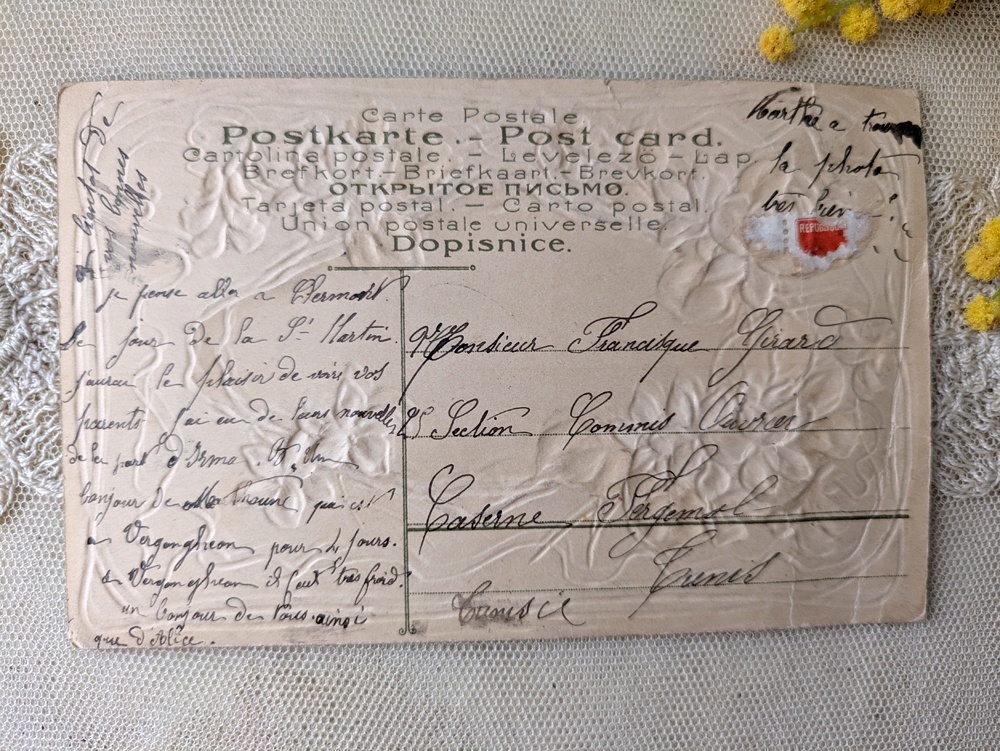 Carte Postale.
Postkarte. - Post card.
Cartolina postale. - Levelezö - Lap
Brefkort. - Briefkaart. - Brevkort.
ОТКРЫТОЕ ПИСЬМО.
Tarjeta postal. - Carto postal.
Union postale universelle.
Dopisnice.
Marthe a
la photo
très
REPUBLIQUE
de
vos bonnes
nouvelles
je pense aller a Clermont
le jour de la St Martin.
j'aurai le plaisir de voir vos
parents j'ai eu de leurs nouvelles
de la part d'Irma.
bonjour de qui est
a Vergongheon pour 4 jours.
a Vergongheon il fait très froid
un bonjour de tous ainsi
que d'Alice.
Monsieur Francisque Girard
25 Section Commis Ouvrier
Caserne Forgemol
Tunis
Tunisie